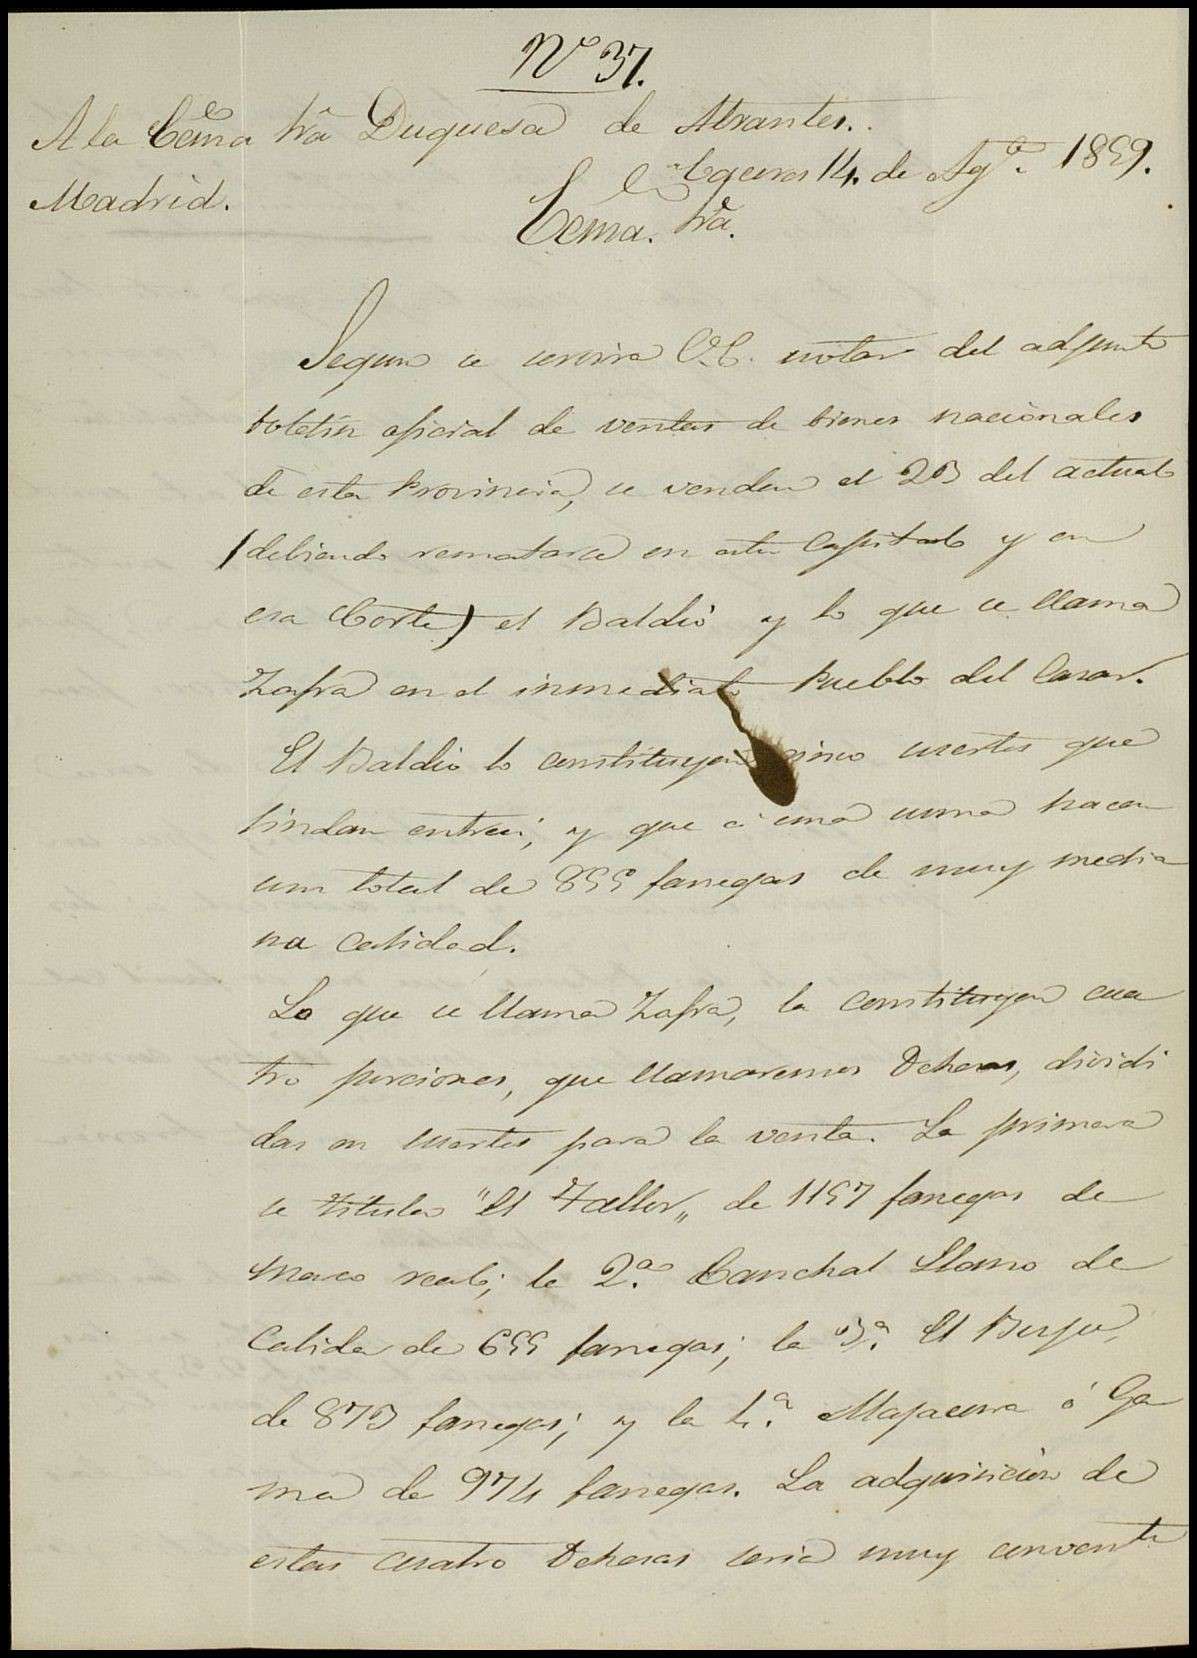 Nº 37.
A la Ecma Sra Duquesa de Abrantes.
Caceres 14. de Agto. 1859.
Madrid.
Ecma. Sra.
Segun se servira V.E. notar del adjunto
boletin oficial de ventas de bienes nacionales
de esta Provincia, se venden el 23 del actual
(debiendo rematarse en esta Capital y en
esa Corte) el Baldio y lo que se llama
Zafra en el inmediato Pueblo del Casar.
El Baldio lo constituyen cinco suertes que
lindan entresi, y que á una suma hacen
un total de 855 fanegas de muy media
na calidad.
Lo que se llama Zafra, la constituyen cua
tro porciones, que llamaremos Dehesas, dividi
das en suertes para la venta. La primera
se titula "El Taller" de 1157 fanegas de
Marco real; la 2.ª Canchal Llano de
Calida de 655 fanegas; la 3ª. El Burju,
de 873 fanegas; y la 4.ª Majacura ó Ga
ma de 974 fanegas. La adquisicion de
estas cuatro Dehesas seria muy convente